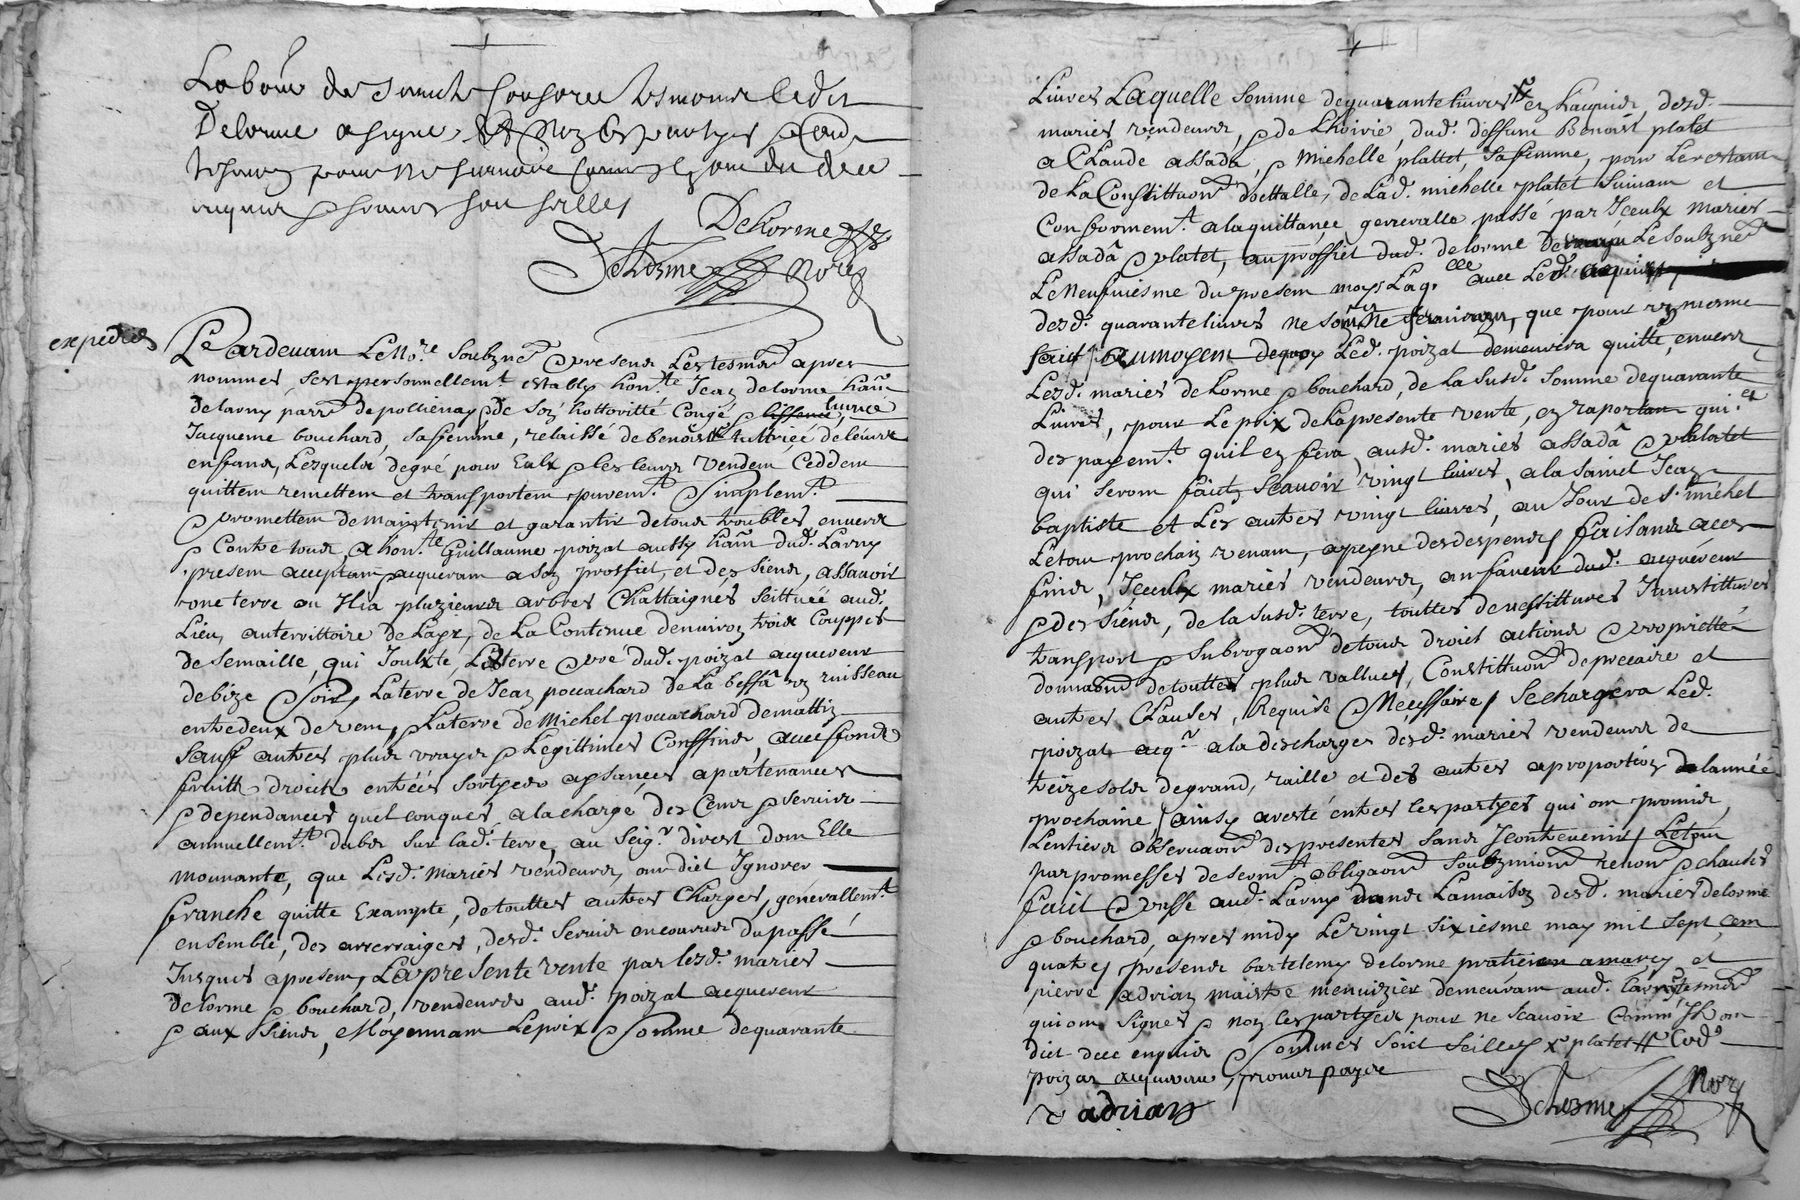 Delorme a signé, et non les partyes
tesmoings pour ne
Delorme
Delorme Nore
expedies
Pardevant le No.re soubzné presents les tesmoins apres
nommes, sest personnellem.t estably hon.te Jean delorme hãn
de lavny parr.e de pollienay, & de son hottoritté Congé, licence
Jacqueme bouchard, sa femme, relaissé de benoist tuttricé de leurs
enfans, Lesquels degré pour Eulx & les leurs vendent Ceddent
quittent remettent et transportent purem.t & Simplem.t
promettent de maintenir et garantir de tous troubles, envers
& Contre tous, a hon.te Guillaume poizat aussy hãn dud. Lavny
present acceptant acquerant a son proffict, et des siens, assavoir
une terre ou Il ia pluzieurs arbres Chattaignes scittuéé aud.
Lieu, autervittoire de Lape, de La Contenue denviron trois Couppés
de Semaille, qui Jouxte, La terre & pré dud. poizat acquereur
de bize & soir, La terre de Jean pocachard de La beffã un ruisseau
entredeux de vent, & La terre de Michel pocachard de mattin
Sauf autres plus vrayes & Legittimes Conffins, avec fonds
fruitts droits entréés sortyes aysances apartenances
& dependances quelconques, a la charge des Cens & servis
annuellem.tt dubs sur lad. terre, au Seig.r direct dont Elle
mouvante, que Lesd. mariés vendeurs, ont dict Ignorer
franche quitte Exampte, de touttes autres Charges, generallem.t
ensemble, des arrerraiges, desd. Servis encourus du passé
Jusques a present, La presente vente par lesd. mariés
delorme & bouchard, vendeurs aud. poizat acquereur
& aux siens, Moyennant Le prix & Somme de quarante
Livres Laquelle somme de quarante livres en Lacquis desd.
mariés vendeurs, & de Lhoirié, dud. deffunt Benoist platet
a CLaude assada, & Michelle plattet, sa femme, pour Le restant
de La Constittuon dottalle, de Lad. michelle platet suivant et
Conformem.t a la quittance generalle passé par Jceulx mariés
assadã & platet, au proffict dud. delorme Le Soubzné
Le Neufviesme du present moys Laq.elle avec Led.
desd. quarante livres ne que pour un mesme
faict / Aumoyen dequoy Led. poizat demeurera quitte, envers
Lesd. mariés deLorme & bouchard, de la susd. somme de quarante
Livres, pour Le prix de la presente vente, en raportant
des payem.t quil en fera ausd. mariés assadã & platet
qui seront faicts scavoir vingt livres, a la Sainct Jean
baptiste et Les autres vingt livres, au Jour de S.t michel
Letout prochain venant, a peyne des despens / faisant a ces
fins, Jceulx mariés vendeurs, en faveur dud. acquereur
& des siens, de la susd. terre, touttes devestitures Jnvestittures
transport & subrogaon de tous droict actions & proprietté
donnaon de touttes plus vallues, Constittuon de precaire et
autres Clauses, Requise & Necessaire / Se chargera Led.
poizat acq.r a la descharges desd. mariés vendeurs de
treize sols de grand, taille et des autres a proportion de lannéé
prochaine / ainsy aresté entres les partyes qui ont promis,
Lentiere observaon des presentes sans Jcontrevenir / Letout
par promesses de serm.t obligaon soubzmion renon & clauses
faict & passé aud. Lavny dans La maison desd. mariés delorme
& bouchard, apres midy Le vingt sixiesme may mil sept cent
quatre, presents bartelemy delorme pratticien a marcy et
pierre adrian maistre menuizier demeurant aud. Lavny tesmoins
qui ont signés & non les partyes pour ne scavoir Comm Jls ont
dict dece enquis & sommes Soict Scellé, x platet # Led.
poizat acquereur,
adrian
Delorme Nore